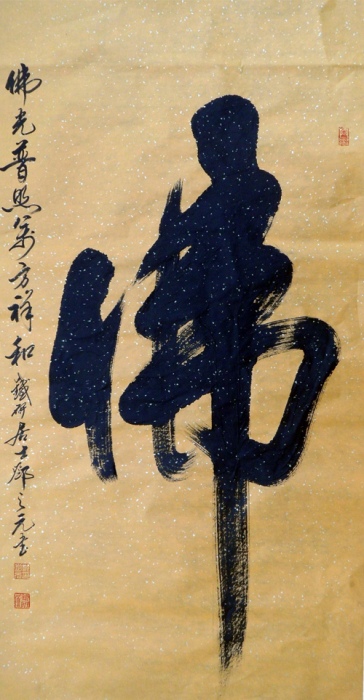 佛
佛光普照万方祥和 铁砚居士邱之元书